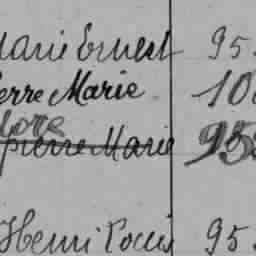 Marie Ernest 95
Pierre Marie 10
pierre Marie 95
Henri Louis 95